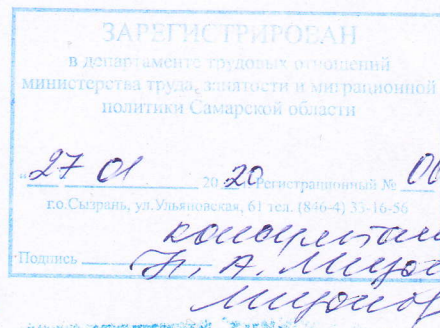 ЗАРЕГИСТРИРОВАН
в департаменте трудовых отношений
министерства труда, занятости и миграционной
политики Самарской области
"27 01 20 20 Регистрационный № 00
г.о.Сызрань, ул.Ульяновская, 61 тел. (846-4) 33-16-56
Подпись